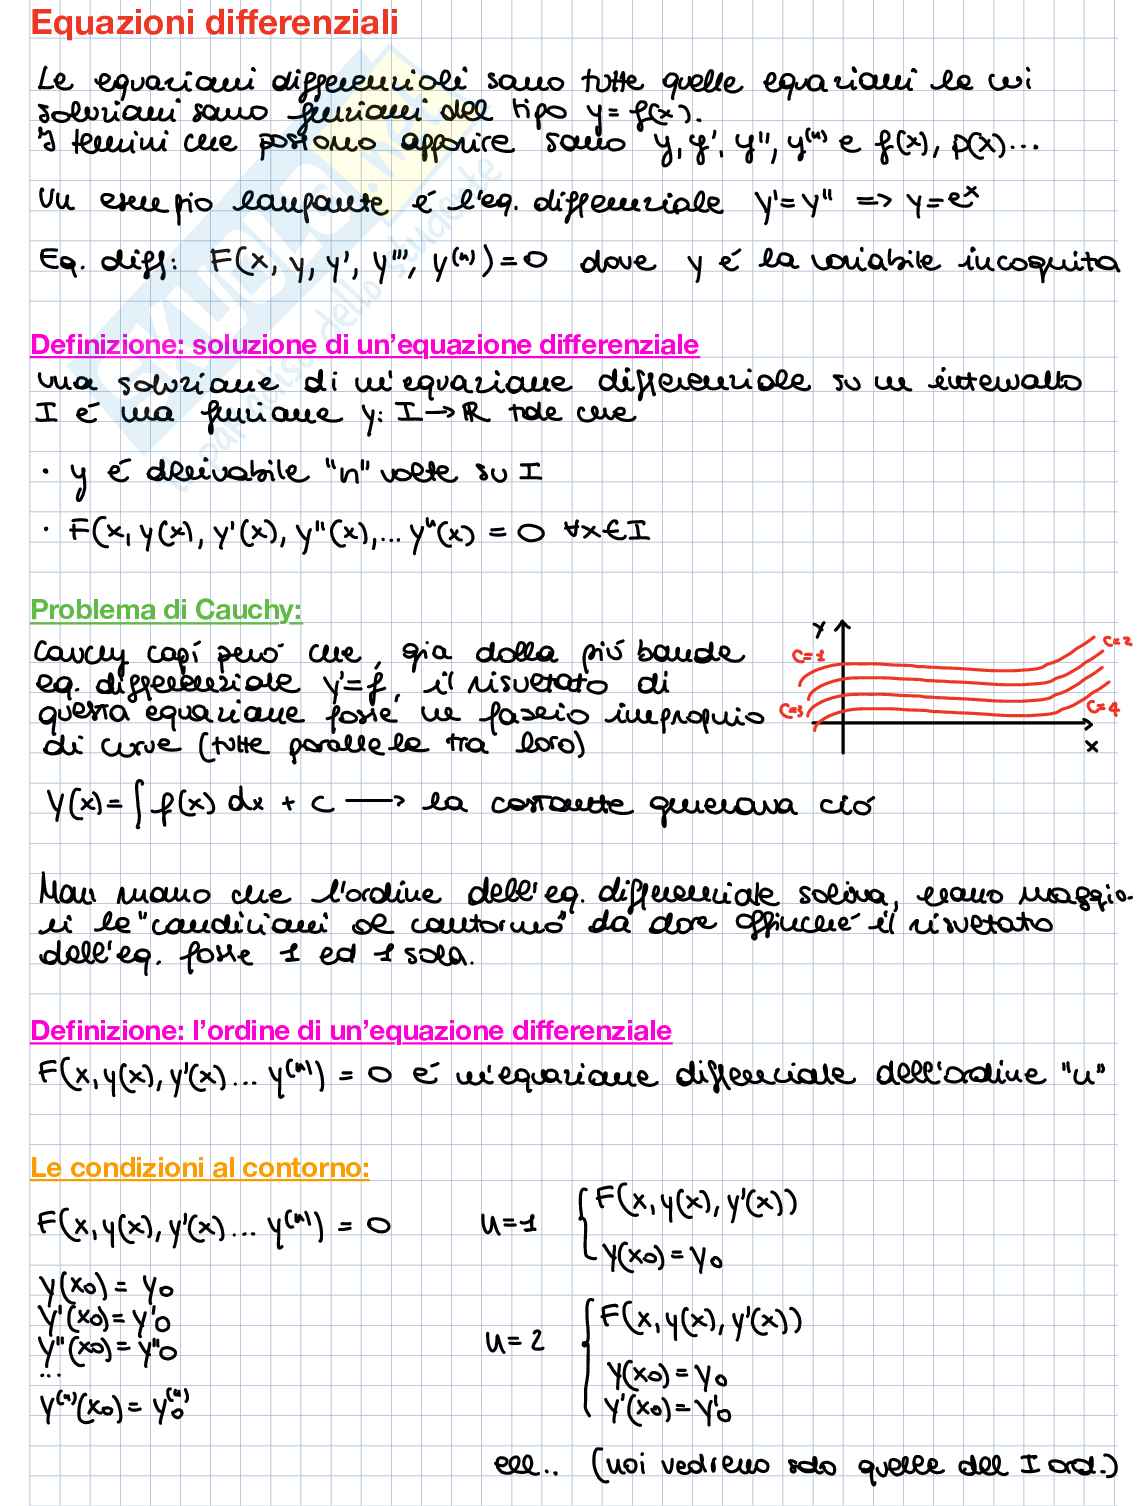 Equazioni differenziali
Le equazioni differenziali sono tutte quelle equazioni le cui
soluzioni sono funzioni del tipo y = f(x).
I termini che possono apparire sono y, y', y'', y⁽ⁿ⁾ e f(x), p(x)...
Un esempio lampante é l'eq. differenziale y' = y'' => y = eˣ
Eq. diff: F(x, y, y', y''', y⁽ⁿ⁾) = 0 dove y é la variabile incognita
Definizione: soluzione di un'equazione differenziale
una soluzione di un'equazione differenziale su un intervallo
I é una funzione y: I → ℝ tale che
· y é derivabile "n" volte su I
· F(x, y(x), y'(x), y''(x),... yⁿ(x) = 0 ∀x∈I
Problema di Cauchy:
Cauchy capí peró che, gia dalla piú banale
eq. differenziale y' = f, il risultato di
questa equazione fosse un fascio improprio
di curve (tutte parallele tra loro)
y
x
C=1
C=2
C=3
C=4
y(x) = ∫ f(x) dx + c → la costante generava ció
Man mano che l'ordine dell'eq. differenziale saliva, erano maggio-
ri le "condizioni al contorno" da dare affinché il risultato
dell'eq. fosse 1 ed 1 sola.
Definizione: l'ordine di un'equazione differenziale
F(x, y(x), y'(x)... y⁽ⁿ⁾) = 0 é un'equazione differenziale dell'ordine "n"
Le condizioni al contorno:
F(x, y(x), y'(x)... y⁽ⁿ⁾) = 0
y(x0) = y0
y'(x0) = y'0
y''(x0) = y''0
...
y⁽ⁿ⁾(x0) = y0⁽ⁿ⁾
n=1 { F(x, y(x), y'(x))
y(x0) = y0
n=2 { F(x, y(x), y'(x))
y(x0) = y0
y'(x0) = y'0
ecc.. (noi vedremo solo quelle del I ord.)
SKUOLA.net
dello studente